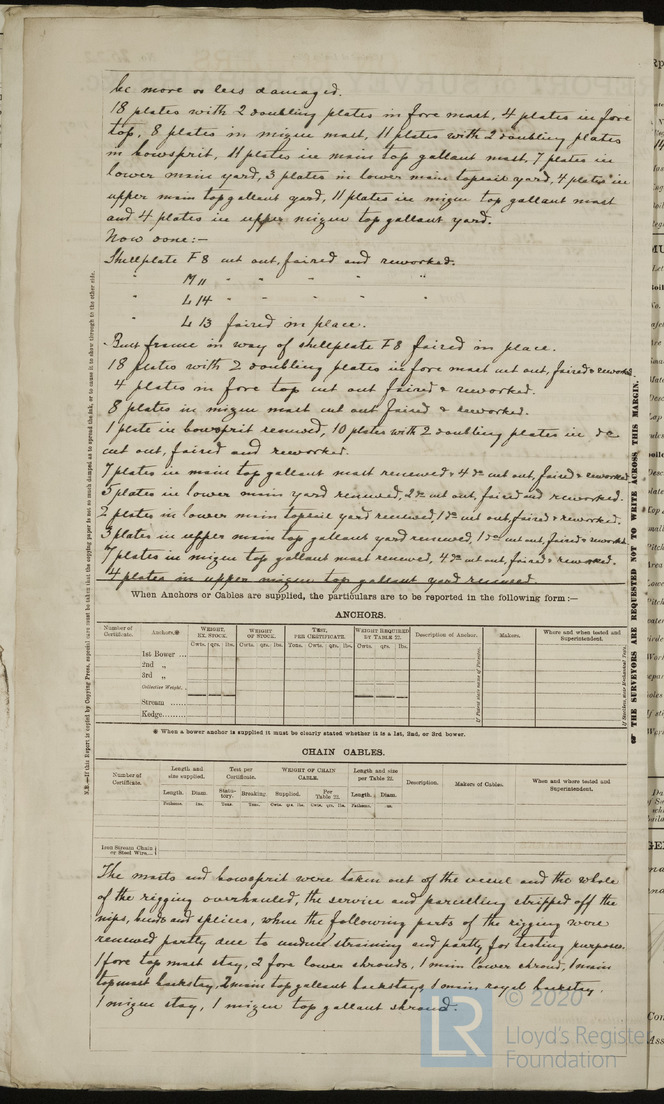 be more or less damaged.
18 plates with 2 doubling plates in fore mast, 4 plates in fore
top, 8 plates in mizen mast, 11 plates with 2 doubling plates
in bowsprit, 11 plates in main top gallant mast, 7 plates in
lower main yard, 3 plates in lower main topsail yard, 4 plates in
upper main topgallant yard, 11 plates in mizen top gallant mast
and 4 plates in upper mizen top gallant yard.
Now done:-
Shellplate F 8 cut out, faired and reworked.
" M 11 " " " "
" L 14 " " " "
" L 13 faired in place.
frame in way of shellplate F8 faired in place.
18 plates with 2 doubling plates in fore mast cut out, faired & reworked.
4 plates in fore top cut out faired & reworked.
8 plates in mizen mast cut out faired & reworked.
1 plate in bowsprit renewed, 10 plates with 2 doubling plates in do
cut out, faired and reworked.
7 plates in main top gallant mast renewed & 4 do cut out, faired & reworked
5 plates in lower main yard renewed, 2 do cut out, faired and reworked.
2 plates in lower main topsail yard renewed, 1 do cut out, faired & reworked.
3 plates in upper main top gallant yard renewed, 1 do cut out, faired & reworked
7 plates in mizen top gallant mast renewed, 4 do cut out, faired & reworked.
4 plates in upper mizen top gallant yard renewed.
When Anchors or Cables are supplied, the particulars are to be reported in the following form:—
ANCHORS.
Number of Certificate. Anchors.* WEIGHT, EX. STOCK. WEIGHT OF STOCK. TEST, PER CERTIFICATE. WEIGHT REQUIRED BY TABLE 22. Description of Anchor. Makers. Where and when tested and Superintendent.
Cwts. qrs. lbs. Cwts. qrs. lbs. Tons. Cwts. qrs. lbs. Cwts. qrs. lbs.
1st Bower ...
2nd "
3rd "
Collective Weight.
Stream
Kedge
* When a bower anchor is supplied it must be clearly stated whether it is a 1st, 2nd, or 3rd bower.
CHAIN CABLES.
Number of Certificate. Length and size supplied. Test per Certificate. WEIGHT OF CHAIN CABLE. Length and size per Table 22. Description. Makers of Cables. When and where tested and Superintendent.
Length. Diam. Statutory. Breaking Supplied. Per Table 22. Length. Diam.
Fathoms. Ins. Tons. Tons. Cwts. qrs. lbs. Cwts. qrs. lbs. Fathoms. Ins.
Iron Stream Chain or Steel Wire...
The masts and bowsprit were taken out of the vessel and the whole
of the rigging overhauled, the service and parcelling stripped off the
nips, bends and splices, when the following parts of the rigging were
renewed partly due to undue straining and partly for testing purposes.
1 fore top mast stay, 2 fore lower shrouds, 1 main lower shroud, 1 main
topmast backstay, 2 main top gallant backstays, 1 main royal backstay.
1 mizen stay, 1 mizen top gallant shroud.
N.B.—If this Report is copied by Copying Press, especial care must be taken that the copying paper is not so much damped as to spread the ink, or to cause it to show through to the other side.
THE SURVEYORS ARE REQUESTED NOT TO WRITE ACROSS THIS MARGIN.
LR
© 2020
Lloyd's Register
Foundation